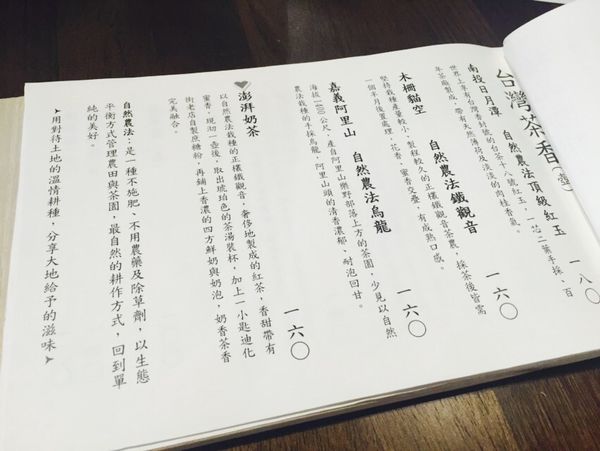 台灣茶香(壺)
南投日月潭　自然農法頂級紅玉　一八〇
世界上享有台灣香封號的台茶十八號紅玉，一芯二葉手採、百
年茶廠製成，帶有天然薄荷及淡淡的肉桂香氣。
木柵貓空　自然農法鐵觀音　一六〇
堅持栽種產量較小、製程較久的正欉鐵觀音茶農，採茶後皆需
一個半月後置處理，花香、蜜香交疊，有成熟口感。
嘉義阿里山　自然農法烏龍　一六〇
海拔1400公尺，產自阿里山樂野部落上方的茶園，少見以自然
農法栽種的手採烏龍，阿里山頭的清香濃郁、耐泡回甘。
♥澎湃奶茶　一六〇
以自然農法栽種的正欉鐵觀音，奢侈地製成的紅茶，香甜帶有
蜜香，現沏一壺後，取出琥珀色的茶湯裝杯，加上一小匙迪化
街老店自製蔗糖粉，再鋪上香濃的四方鮮奶與奶泡，奶香茶香
完美融合。
自然農法：是一種不施肥、不用農藥及除草劑，以生態
平衡方式管理農田與茶園，最自然的耕作方式，回到單
純的美好。
➤用對待土地的溫情耕種，分享大地給予的滋味➤